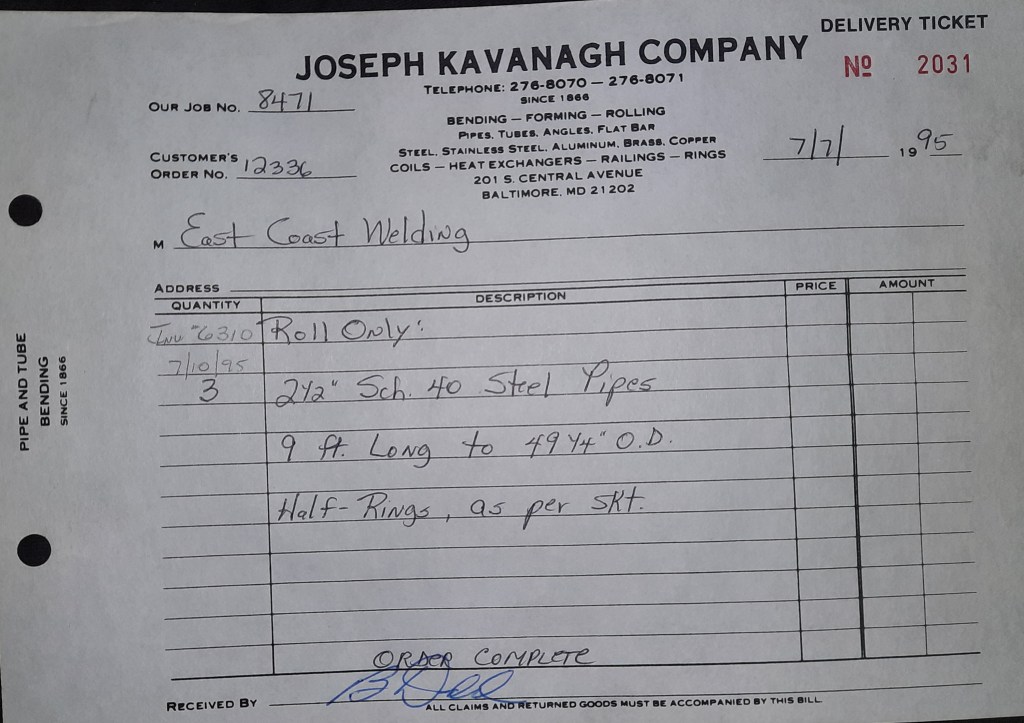 DELIVERY TICKET
JOSEPH KAVANAGH COMPANY
Nº 2031
TELEPHONE: 276-8070 — 276-8071
SINCE 1866
OUR JOB NO. 8471
BENDING — FORMING — ROLLING
PIPES, TUBES, ANGLES, FLAT BAR
STEEL, STAINLESS STEEL, ALUMINUM, BRASS, COPPER
COILS — HEAT EXCHANGERS — RAILINGS — RINGS
201 S. CENTRAL AVENUE
BALTIMORE, MD 21202
CUSTOMER'S
ORDER NO. 12336
7/7/ 1995
M East Coast Welding
ADDRESS
QUANTITY DESCRIPTION PRICE AMOUNT
Inv #6310 Roll Only:
7/10/95
3 2 1/2" Sch. 40 Steel Pipes
9 ft. Long to 49 1/4" O.D.
Half-Rings, as per skt.
ORDER COMPLETE
RECEIVED BY
ALL CLAIMS AND RETURNED GOODS MUST BE ACCOMPANIED BY THIS BILL
PIPE AND TUBE
BENDING
SINCE 1866